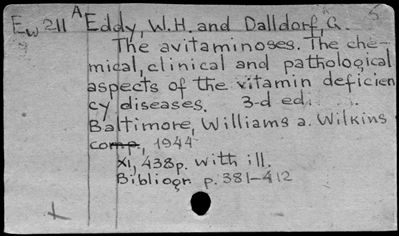 Ew 211 A Eddy, W.H. and Dalldorf, G.
The avitaminoses. The che-
mical, clinical and pathological
aspects of the vitamin deficien
cy diseases. 3-d ed.
Baltimore, Williams a. Wilkins
comp., 1944
XI, 438p. with ill.
Bibliogr. p. 381-412